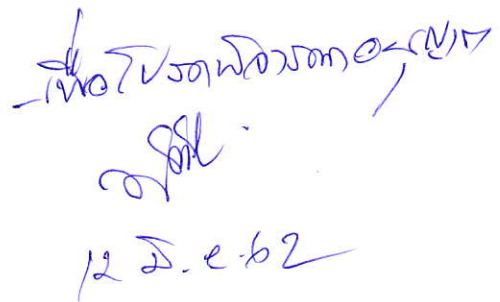 - เพื่อโปรดพิจารณาอนุญาต
12 มิ.ย. 62